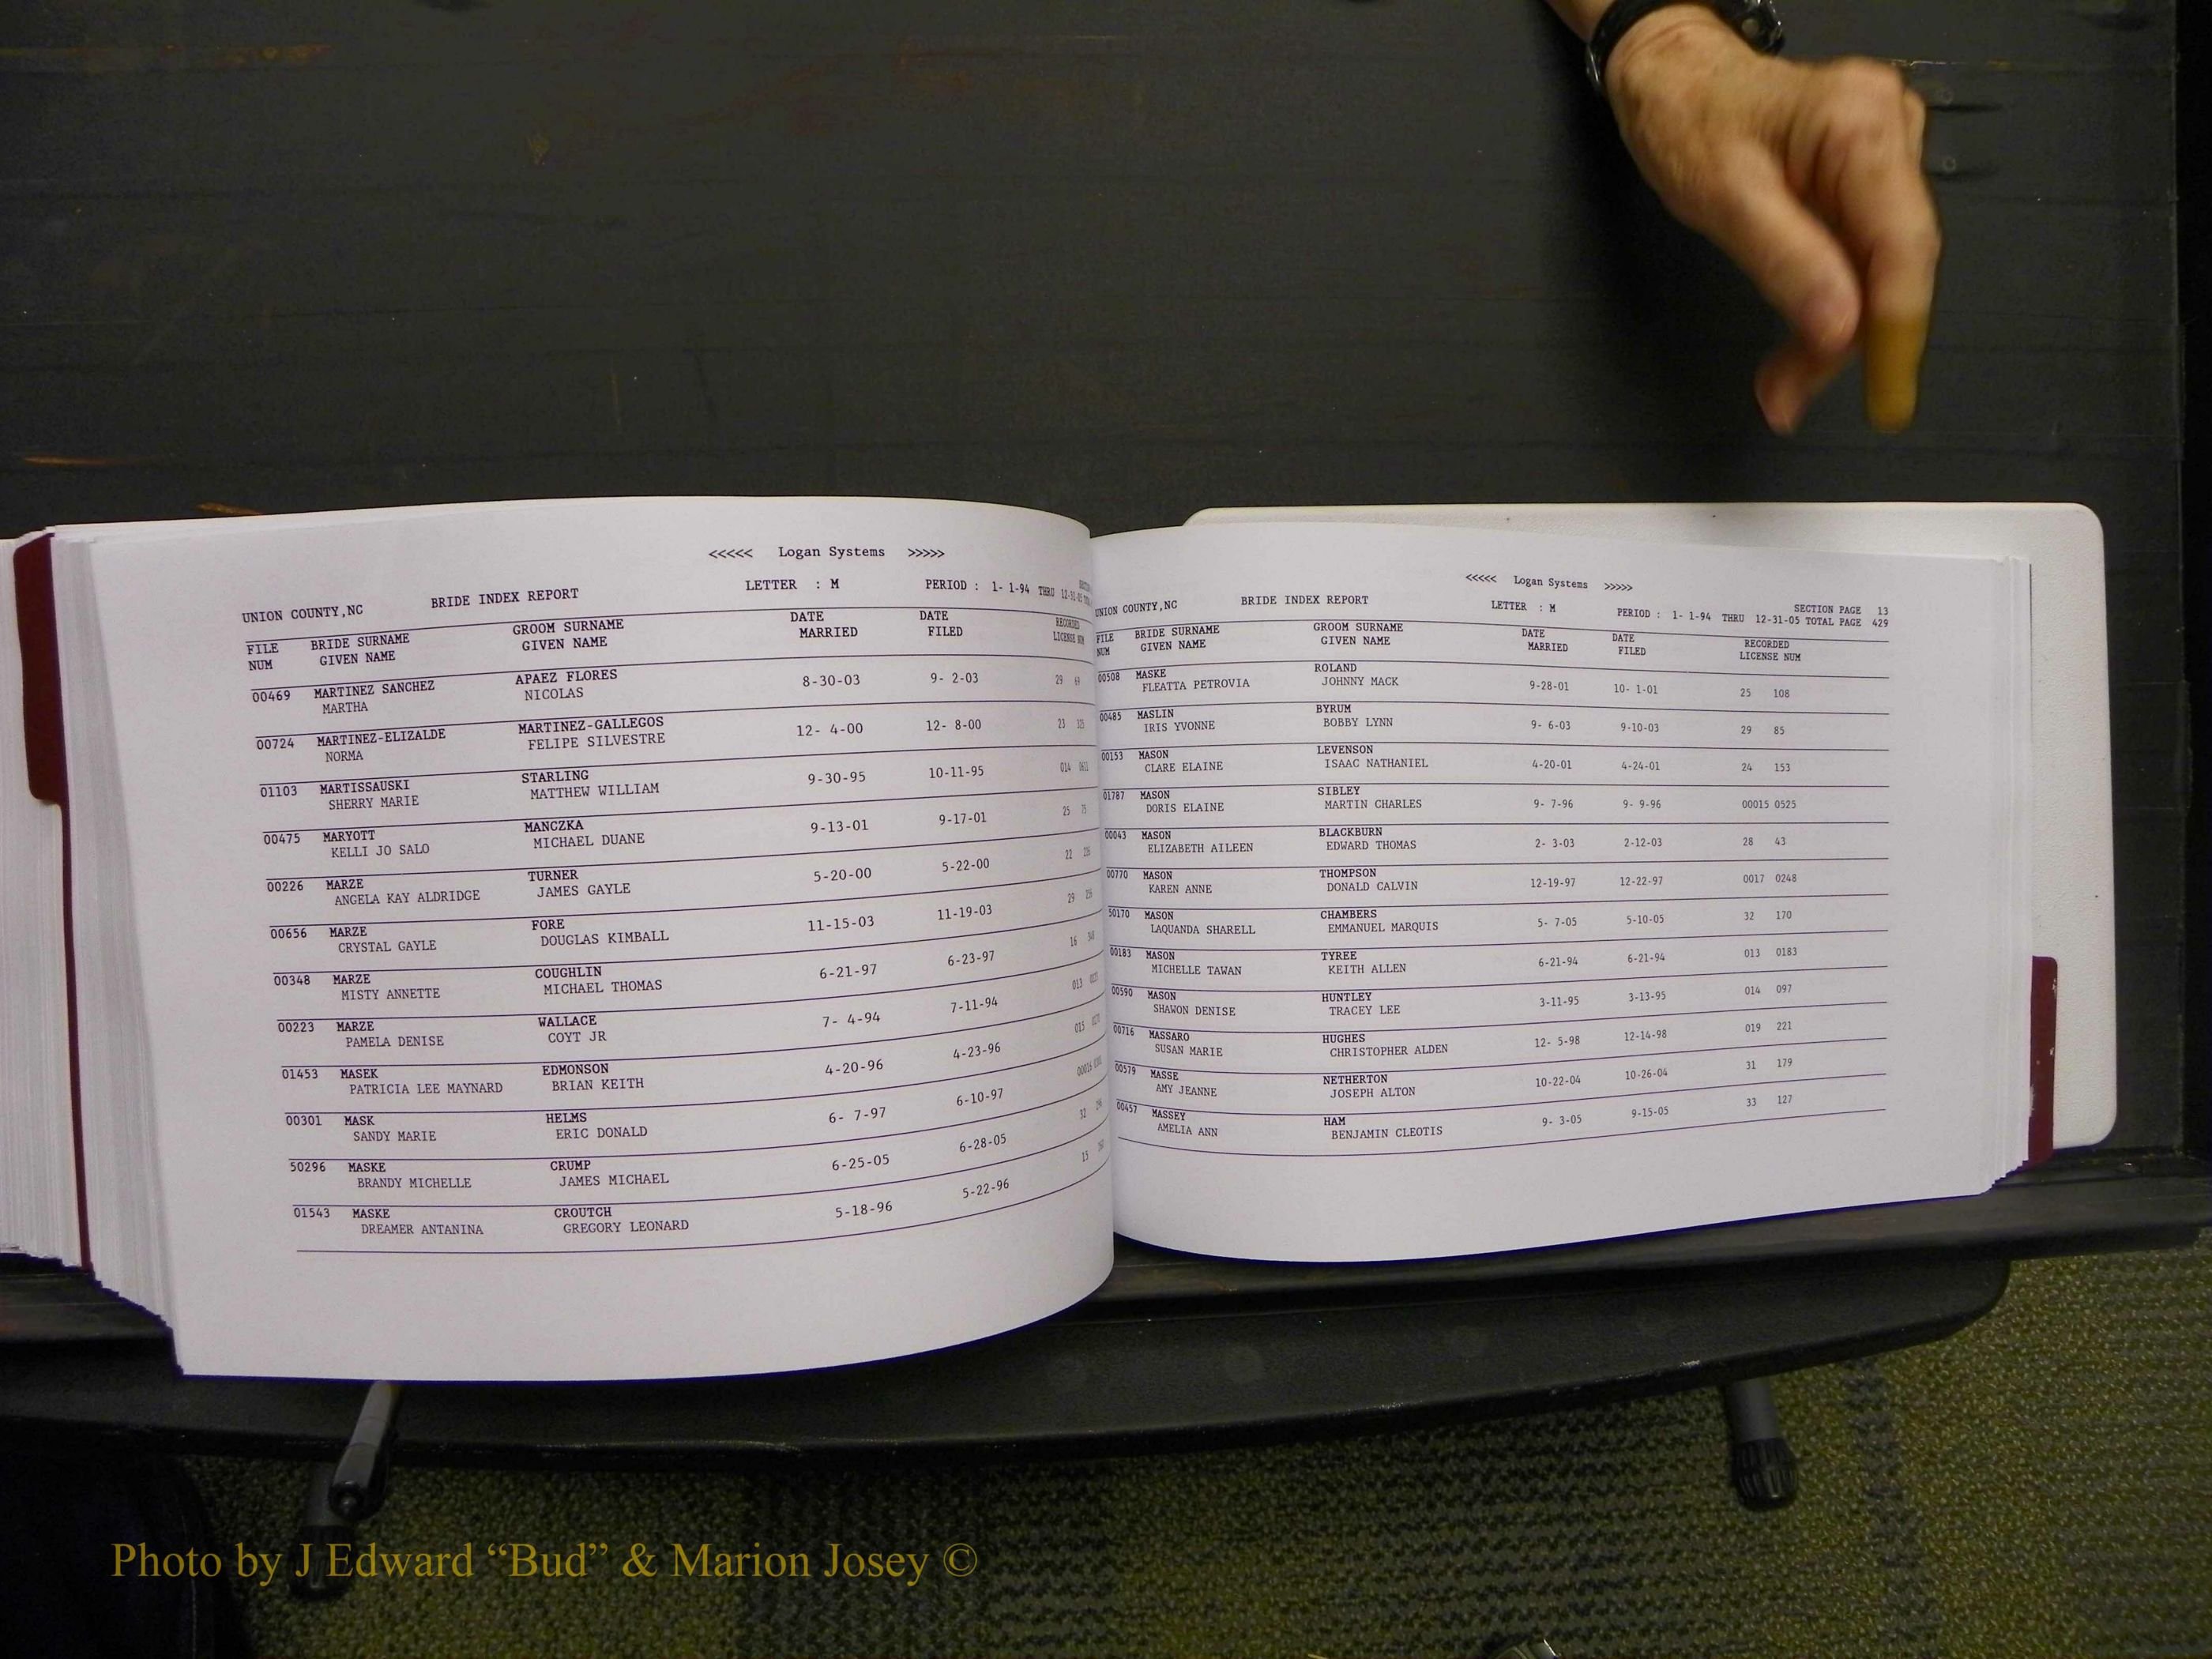 <<<<< Logan Systems >>>>>
UNION COUNTY,NC BRIDE INDEX REPORT LETTER : M PERIOD : 1- 1-94 THRU
FILE BRIDE SURNAME GROOM SURNAME DATE DATE RECORDED
NUM GIVEN NAME GIVEN NAME MARRIED FILED LICENSE NUM
00469 MARTINEZ SANCHEZ APAEZ FLORES 8-30-03 9- 2-03 29
MARTHA NICOLAS
00724 MARTINEZ-ELIZALDE MARTINEZ-GALLEGOS 12- 4-00 12- 8-00 23
NORMA FELIPE SILVESTRE
01103 MARTISSAUSKI STARLING 9-30-95 10-11-95 014
SHERRY MARIE MATTHEW WILLIAM
00475 MARYOTT MANCZKA 9-13-01 9-17-01 25
KELLI JO SALO MICHAEL DUANE
00226 MARZE TURNER 5-20-00 5-22-00 22
ANGELA KAY ALDRIDGE JAMES GAYLE
00656 MARZE FORE 11-15-03 11-19-03 29
CRYSTAL GAYLE DOUGLAS KIMBALL
00348 MARZE COUGHLIN 6-21-97 6-23-97 16
MISTY ANNETTE MICHAEL THOMAS
00223 MARZE WALLACE 7- 4-94 7-11-94 013
PAMELA DENISE COYT JR
01453 MASEK EDMONSON 4-20-96 4-23-96 015
PATRICIA LEE MAYNARD BRIAN KEITH
00301 MASK HELMS 6- 7-97 6-10-97
SANDY MARIE ERIC DONALD
50296 MASKE CRUMP 6-25-05 6-28-05 32
BRANDY MICHELLE JAMES MICHAEL
01543 MASKE CROUTCH 5-18-96 5-22-96 15
DREAMER ANTANINA GREGORY LEONARD
<<<<< Logan Systems >>>>>
SECTION PAGE 13
UNION COUNTY,NC BRIDE INDEX REPORT LETTER : M PERIOD : 1- 1-94 THRU 12-31-05 TOTAL PAGE 429
FILE BRIDE SURNAME GROOM SURNAME DATE DATE RECORDED
NUM GIVEN NAME GIVEN NAME MARRIED FILED LICENSE NUM
00508 MASKE ROLAND 9-28-01 10- 1-01 25 108
FLEATTA PETROVIA JOHNNY MACK
00485 MASLIN BYRUM 9- 6-03 9-10-03 29 85
IRIS YVONNE BOBBY LYNN
00153 MASON LEVENSON 4-20-01 4-24-01 24 153
CLARE ELAINE ISAAC NATHANIEL
01787 MASON SIBLEY 9- 7-96 9- 9-96 00015 0525
DORIS ELAINE MARTIN CHARLES
00043 MASON BLACKBURN 2- 3-03 2-12-03 28 43
ELIZABETH AILEEN EDWARD THOMAS
00770 MASON THOMPSON 12-19-97 12-22-97 0017 0248
KAREN ANNE DONALD CALVIN
50170 MASON CHAMBERS 5- 7-05 5-10-05 32 170
LAQUANDA SHARELL EMMANUEL MARQUIS
00183 MASON TYREE 6-21-94 6-21-94 013 0183
MICHELLE TAWAN KEITH ALLEN
00590 MASON HUNTLEY 3-11-95 3-13-95 014 097
SHAWON DENISE TRACEY LEE
00716 MASSARO HUGHES 12- 5-98 12-14-98 019 221
SUSAN MARIE CHRISTOPHER ALDEN
00579 MASSE NETHERTON 10-22-04 10-26-04 31 179
AMY JEANNE JOSEPH ALTON
00457 MASSEY HAM 9- 3-05 9-15-05 33 127
AMELIA ANN BENJAMIN CLEOTIS
Photo by J Edward “Bud” & Marion Josey ©